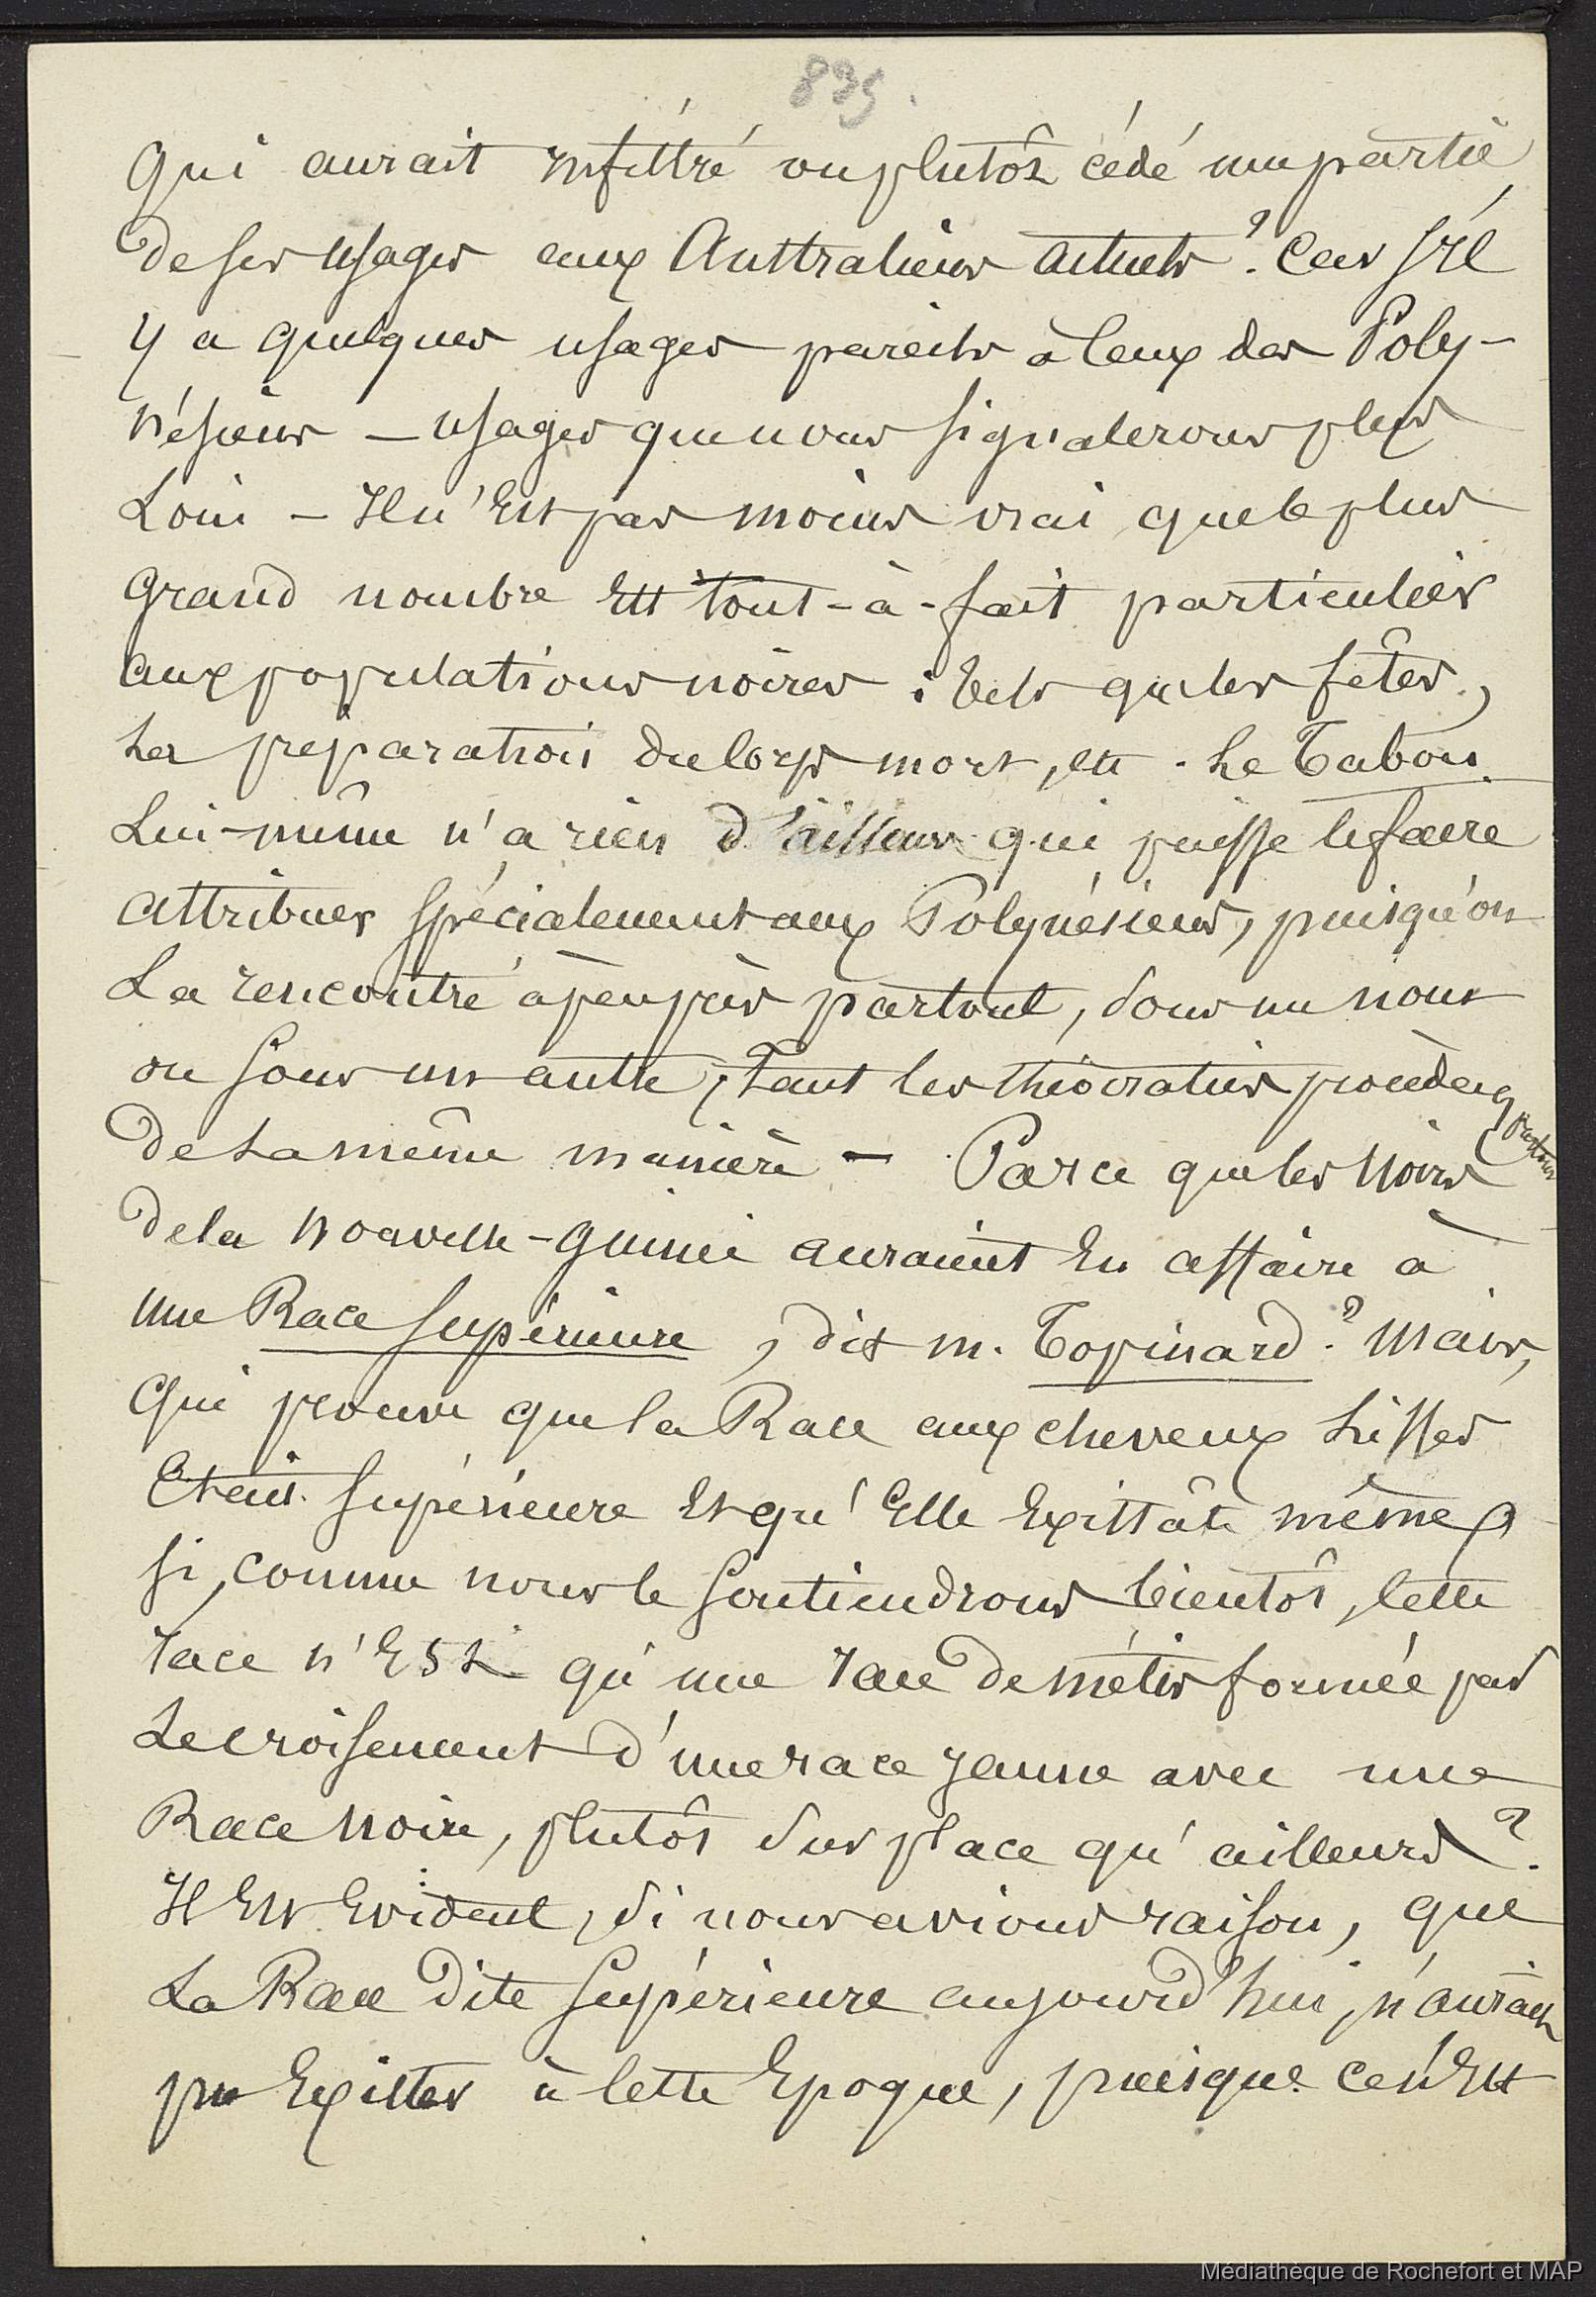 835.
qui aurait infiltré ou plutôt cédé une partie
de ses usages aux Australiens actuels ? Car s'il
y a quelques usages pareils à ceux des Poly-
nésiens — usages que nous signalerons plus
Loin — Il n'est pas moins vrai que le plus
grand nombre est tout-à-fait particulier
aux populations noires : tels que les fêtes,
La préparation du corps mort, etc. Le Tabou
Lui-même n'a rien d'ailleurs qui puisse le faire
attribuer spécialement aux Polynésiens, puisqu'on
La rencontré à peu près partout, sous un nom
ou sous un autre, tant les théocraties procèdent partout
de la même manière — Parce que les noirs
de la Nouvelle-Guinée auraient eu affaire à
une Race supérieure, dit M. Topinard ? Mais,
qui prouve que la Race aux cheveux Lisses
était supérieure et qu'elle existât même,
si, comme nous le soutiendrons bientôt, cette
race n'est qu'une race de métis formée par
Le croisement d'une race jaune avec une
Race noire, plutôt sur place qu'ailleurs ?
Il est Evident, si nous avions raison, que
La Race dite supérieure aujourd'hui, n'aurait
pu Exister à cette Epoque, puisque ce n'est
Médiathèque de Rochefort et MAP